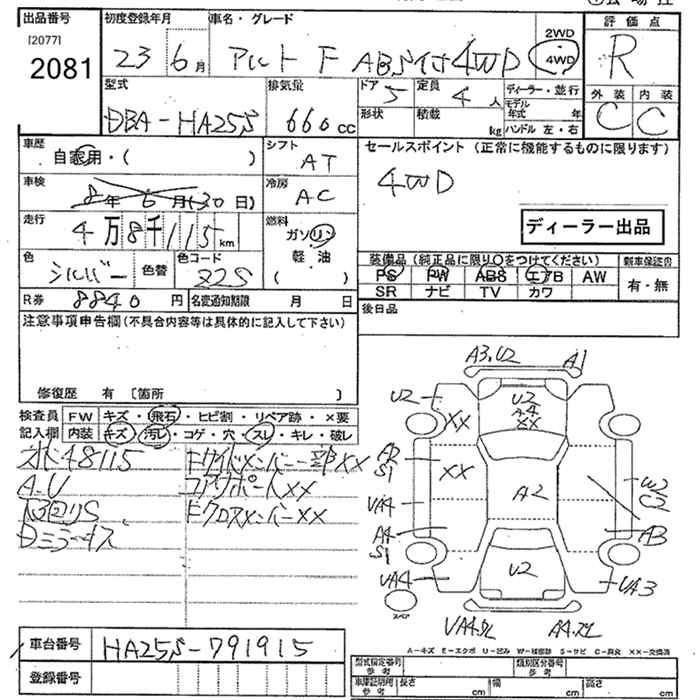 出品番号 初度登録年月 車名・グレード 評価点
[2077]
2081
23 6月 アルト F ABS付 4WD 2WD 4WD R
型式 排気量 ドア 定員 ディーラー・並行 外装 内装
DBA-HA25S 660cc 5 4人 C C
形状 積載 kg モデル年式 年
ハンドル 左・右
車歴 自家用・( ) シフト AT セールスポイント(正常に機能するものに限ります)
4WD
車検 8年 6月(30日) 冷房 AC
走行 4万8千115km 燃料 ガソリン
軽・油
( )
ディーラー出品
色 シルバー 色替 色コード Z2S
装備品(純正品に限り○をつけてください) 新車保証書
PS PW ABS エアB AW 有・無
SR ナビ TV カワ
R券 8840円 名変通知期限 月 日
後日品
注意事項申告欄(不具合内容等は具体的に記入して下さい)
修復歴 有 [箇所 ]
検査員 FW キズ・飛石・ヒビ割・リペア跡・×要
記入欄 内装 キズ・汚レ・コゲ・穴・スレ・キレ・破レ
オド48115
A-U コアサポートXX
下回りS
Dミラーキズ
A3.U2 A1
U2 XX U2 A4 XX
A2 S1 XX W2 C2
VA4 A2
A4 S1 A3
VA4 U2 UA3
スペア
A-キズ E-エクボ U-凹ミ W-補修跡 S-サビ C-腐食 XX-交換済
車台番号 HA25S-791915
登録番号
型式指定番号 参考 類別区分番号 参考
車庫証明用 参考 長さ cm 幅 cm 高さ cm